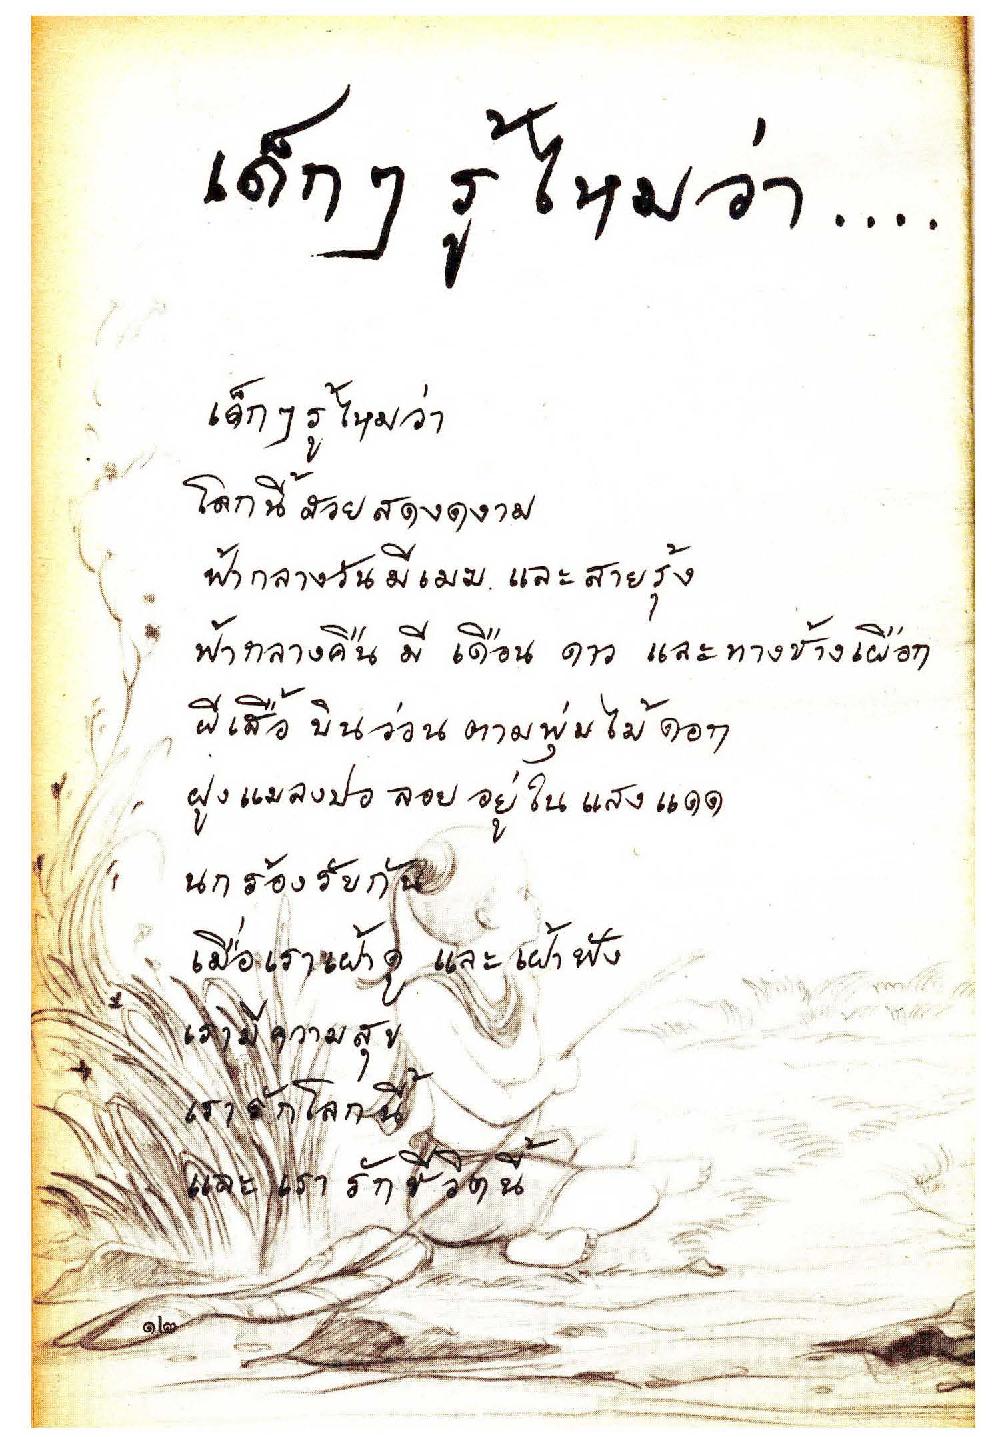 เด็กๆ รู้ไหมว่า....
เด็กๆ รู้ไหมว่า
โลกนี้สวยสดงดงาม
ฟ้ากลางวันมีเมฆ และสายรุ้ง
ฟ้ากลางคืน มี เดือน ดาว และทางช้างเผือก
ผีเสื้อ บินว่อน ตามพุ่มไม้ดอก
ฝูงแมลงปอ ลอย อยู่ใน แสงแดด
นกร้องรับกัน
เมื่อเราเฝ้าดู และ เฝ้าฟัง
เรามีความสุข
เรารักโลกนี้
และ เรา รักชีวิตนี้